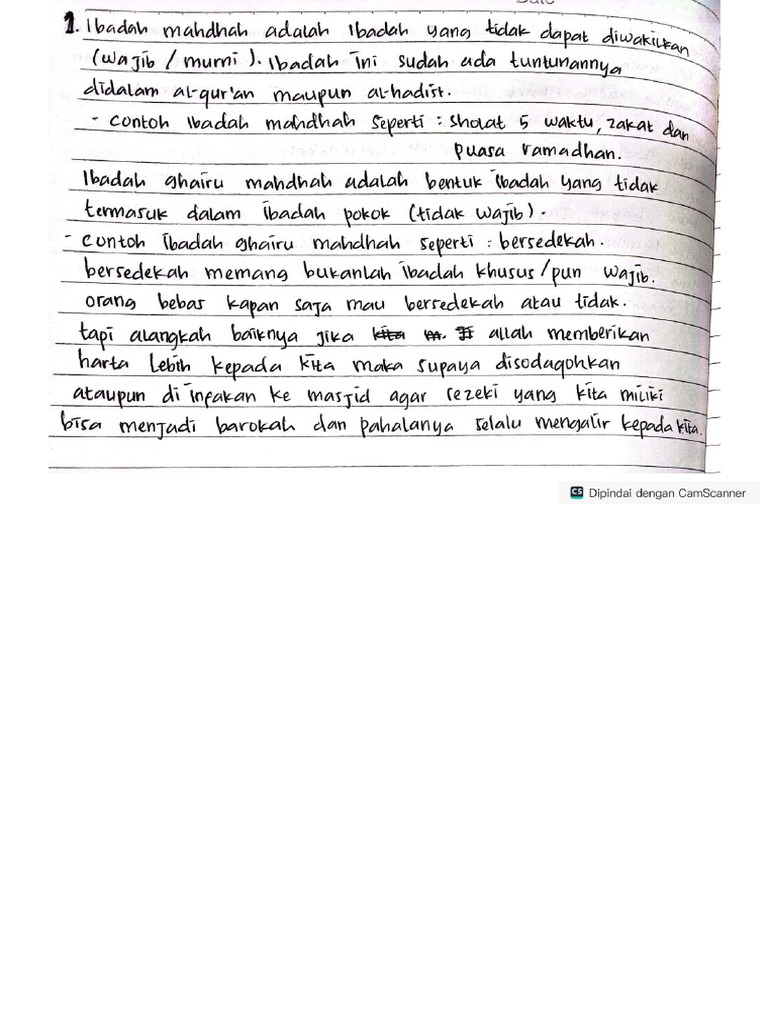 Date
1. Ibadah mahdhah adalah Ibadah yang tidak dapat diwakilkan
(wajib / murni). Ibadah ini sudah ada tuntunannya
didalam al-qur'an maupun al-hadist.
- contoh Ibadah mahdhah seperti : sholat 5 waktu, zakat dan
puasa ramadhan.
Ibadah ghairu mahdhah adalah bentuk ibadah yang tidak
termasuk dalam ibadah pokok (tidak wajib).
- contoh ibadah ghairu mahdhah seperti : bersedekah.
bersedekah memang bukanlah ibadah khusus/pun wajib.
orang bebas kapan saja mau bersedekah atau tidak.
tapi alangkah baiknya jika kita allah memberikan
harta lebih kepada kita maka supaya disodaqohkan
ataupun di infakan ke masjid agar rezeki yang kita miliki
bisa menjadi barokah dan pahalanya selalu mengalir kepada kita.
CS Dipindai dengan CamScanner